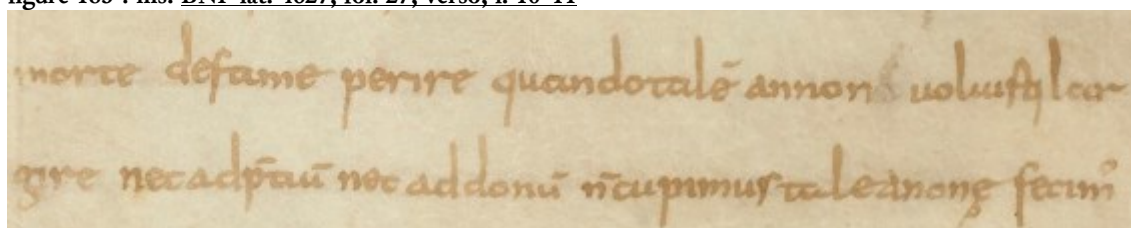 ms. BNF lat. 4627, fol. 27, verso, l. 10-11
morte defame perire quandotalē annon lar
gire nec adp̄tiū nec addonū n̄cupimus taleanonę fecim̄